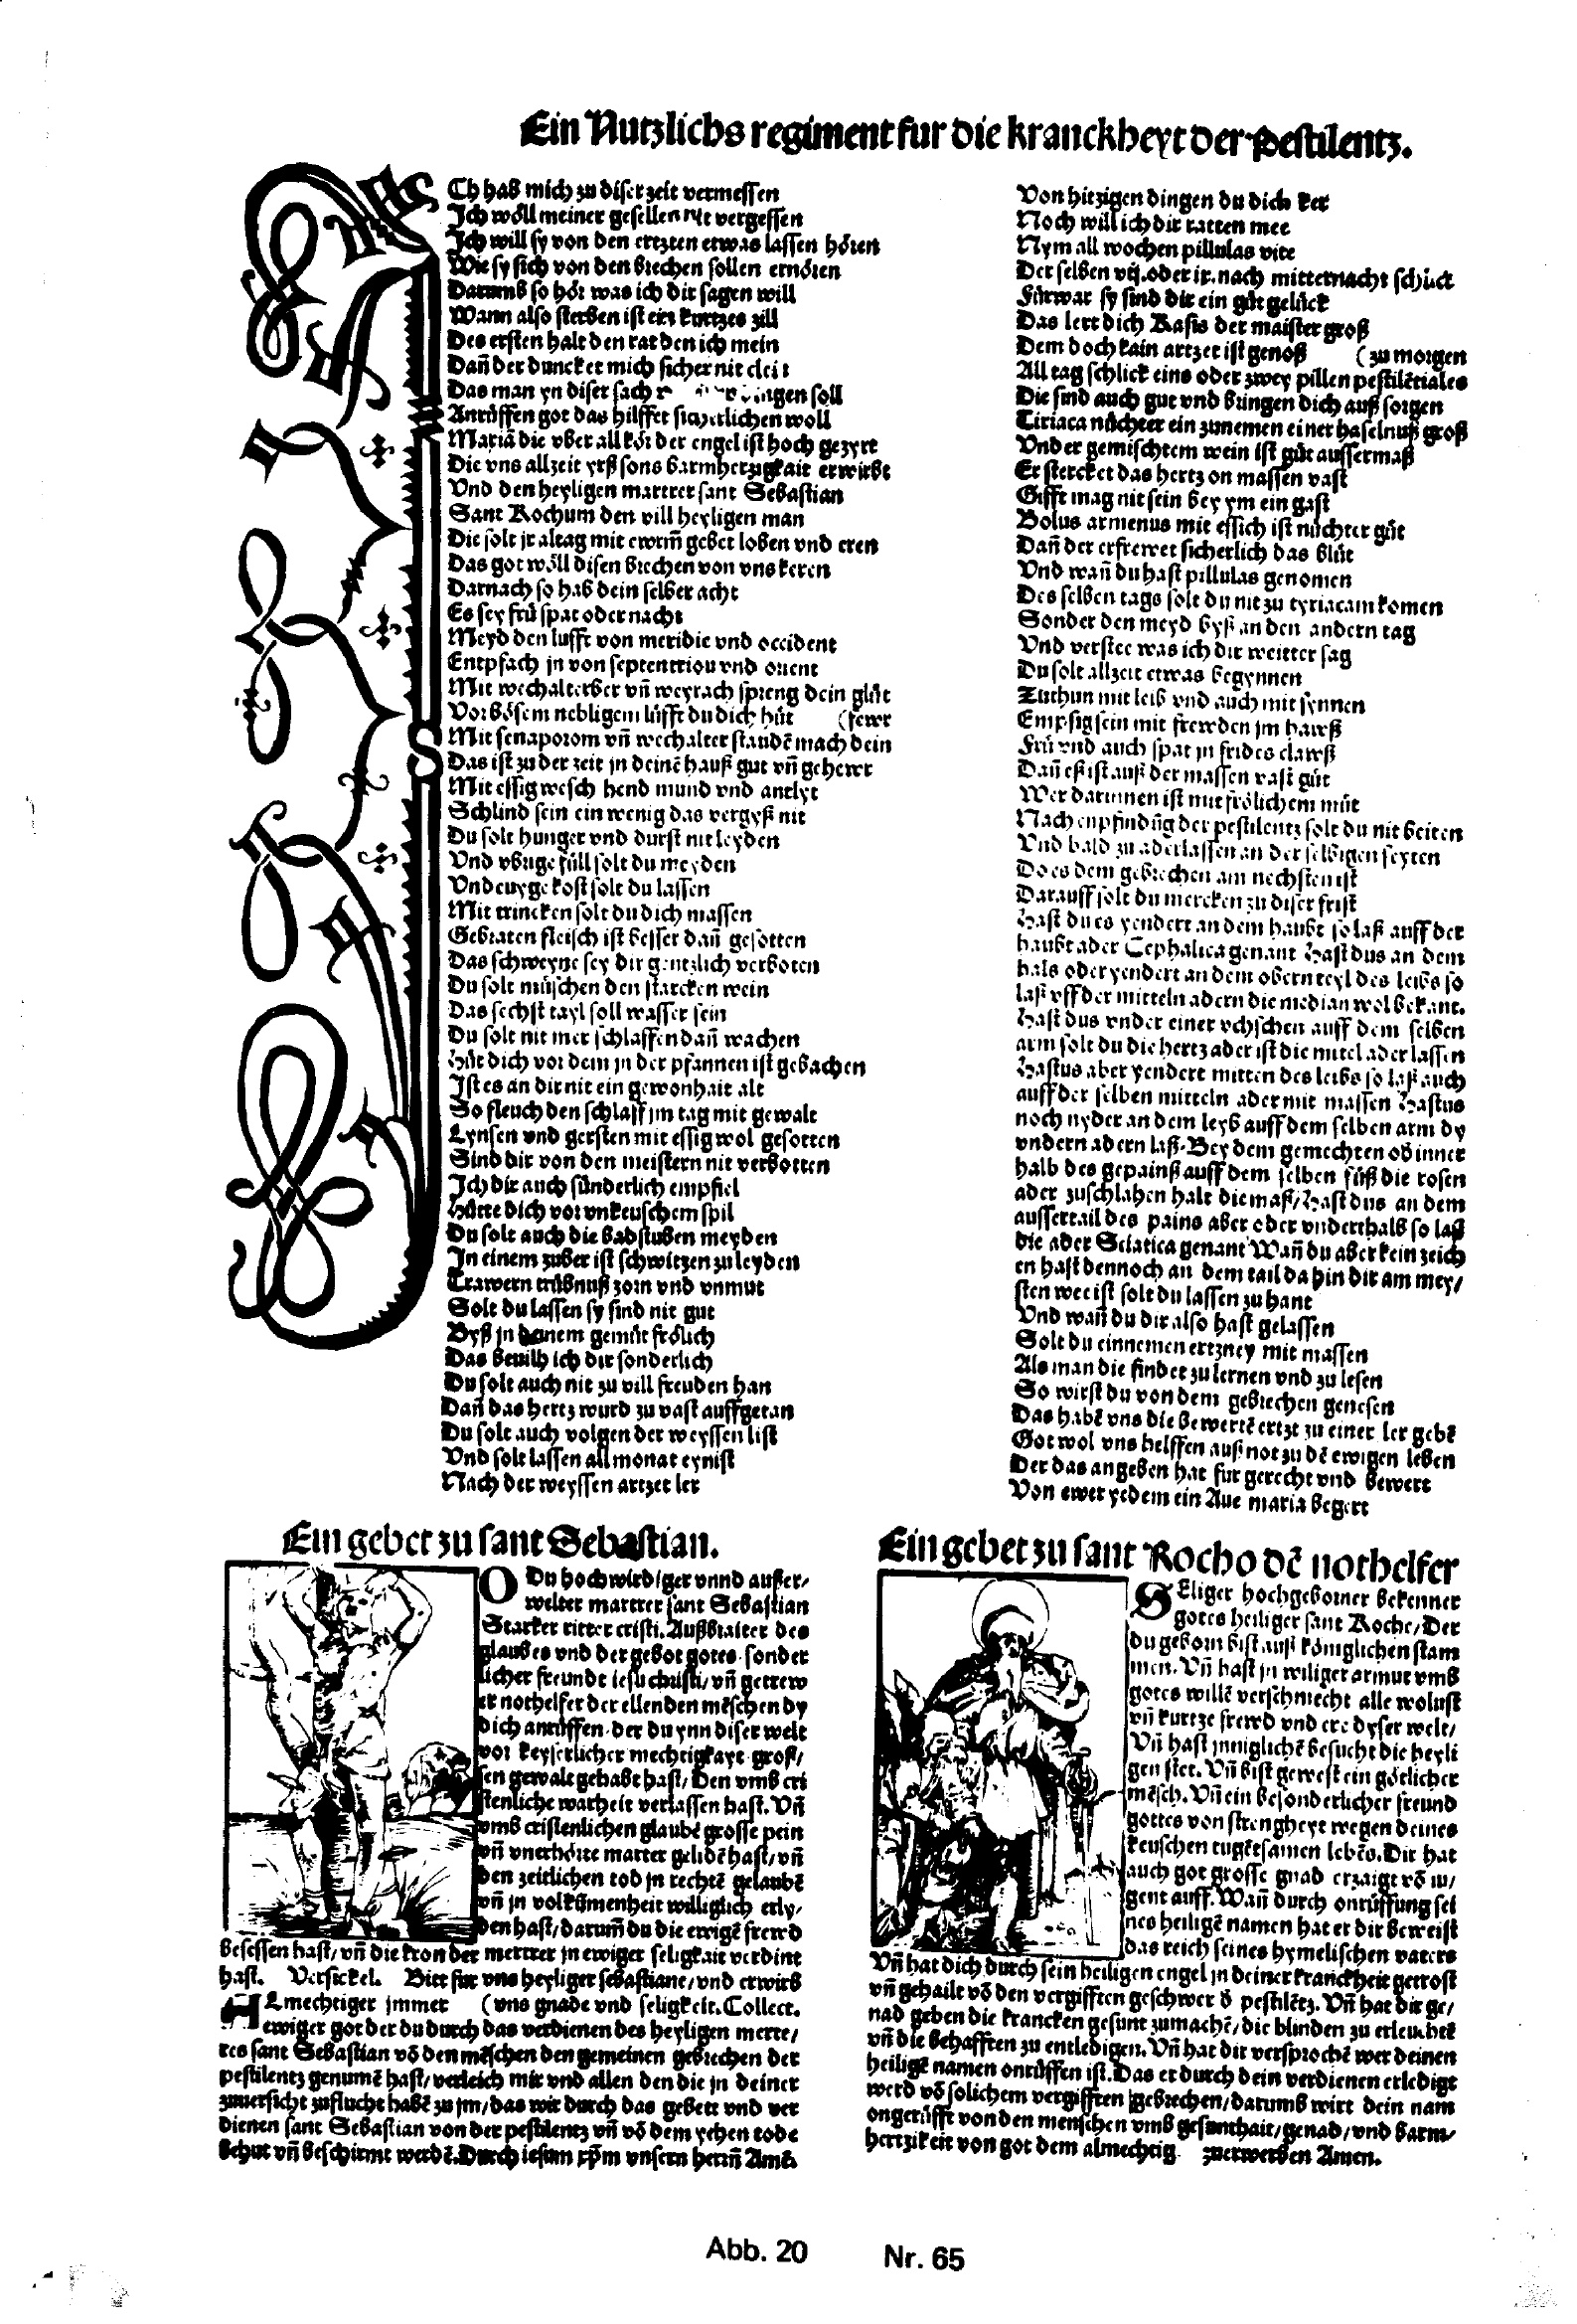 Ein Nutzlichs regiment fur die kranckheyt der Pestilentz.
Ch hab mich zu diser zeit vermessen
Ich wöll meiner gesellen nit vergessen
Ich will sy von den ertzten etwas lassen hören
Wie sy sich von den brechen sollen ernören
Darumb so hör was ich dir sagen will
Wann also sterben ist ein kurtzes zill
Des ersten halt den rat den ich mein
Dañ der duncket mich sicher nit
Das man yn diser sach soll
Anrüffen got das hilffet sicherlichen woll
Mariā die vber all kör der engel ist hoch gezyrt
Die vns allzeit yrß sons barmhertzigkait erwirbt
Vnd den heyligen marterer sant Sebastian
Sant Rochum den vill heyligen man
Die solt jr altag mit ewrm̄ gebet loben vnd eren
Das got wöll disen brechen von vns keren
Darnach so hab dein selber acht
Es sey frü spat oder nacht
Meyd den lufft von meridie vnd occident
Entpfach jn von septentrion vnd orient
Mit wechalterber vñ weyrach spreng dein glüt
Vor bösem nebligem lüfft du dich hüt (fewr
Mit senaporom vñ wechalter staudē mach dein
Das ist zu der zeit jn deinē hauß gut vñ gehewr
Mit essig wesch hend mund vnd antlyt
Schlind sein ein wenig das vergyß nit
Du solt hunger vnd durst nit leyden
Vnd vbrige füll solt du meyden
Vnd euyge kost solt du lassen
Mit trincken solt du dich massen
Gebraten fleisch ist besser dañ gesotten
Das schweyne sey dir gentzlich verboten
Du solt müschen den starcken wein
Das sechst tayl soll wasser sein
Du solt nit mer schlaffen dañ wachen
Hüt dich vor dem jn der pfannen ist gebachen
Ist es an dir nit ein gewonhait alt
So fleuch den schlaff jm tag mit gewalt
Lynsen vnd gersten mit essig wol gesotten
Sind dir von den meistern nit verbotten
Ich dir auch sünderlich empfiel
Hütte dich vor vnkeuschem spil
Du solt auch die badstuben meyden
In einem zuber ist schwitzen zu leyden
Trawern trübnuß zorn vnd vnmut
Solt du lassen sy sind nit gut
Byß jn deinem gemüt frölich
Das beuilh ich dir sonderlich
Du solt auch nit zu vill freuden han
Dañ das hertz wurd zu vast auffgetan
Du solt auch volgen der weyssen list
Vnd solt lassen all monat eynist
Nach der weyssen artzet ler
Von hitzigen dingen du dich ker
Noch will ich dir ratten mee
Nym all wochen pillulas vite
Der selben vij. oder ix. nach mitternacht schlick
Fürwar sy sind dir ein güt gelück
Das lert dich Rasis der maister groß
Dem doch kain artzet ist genoß (zu morgen
All tag schlick eins oder zwey pillen pestilētiales
Die sind auch gut vnd bringen dich auß sorgen
Tiriaca nüchter ein zunemen einer haselnuß groß
Vnder gemischtem wein ist güt aussermaß
Er stercket das hertz on massen vast
Gifft mag nit sein bey ym ein gast
Bolus armenus mit essich ist nüchter güt
Dañ der erfrewet sicherlich das blüt
Vnd wañ du hast pillulas genomen
Des selben tags solt du nit zu tyriacam komen
Sonder den meyd byß an den andern tag
Vnd verstee was ich dir weitter sag
Du solt allzeit etwas begynnen
Zuthun mit leib vnd auch mit synnen
Empsig sein mit frewden jm hawß
Frü vnd auch spat jn frides clawß
Dañ eß ist auß der massen vast güt
Wer darinnen ist mit frölichem müt
Nach enpfindūg der pestilentz solt du nit beiten
Vnd bald zu aderlassen an der selbigen seyten
Do es dem gebrechen am nechsten ist
Darauff solt du mercken zu diser frist
Hast du es yendert an dem haubt so laß auff der
haubt ader Cephalica genant Hast dus an dem
hals oder yendert an dem obern teyl des leibs so
laß vff der mitteln adern die median wol bekant.
Hast dus vnder einer vchschen auff dem selben
arm solt du die hertz ader ist die mitel ader lassen
Hastus aber yendert mitten des leibs so laß auch
auff der selben mitteln ader mit massen Hastus
noch nyder an dem leyb auff dem selben arm dy
vndern adern laß. Bey dem gemechten od inner
halb des gepainß auff dem selben füß die rosen
ader zuschlahen halt die maß/ hast dus an dem
aussertail des pains aber oder vnderthalb so laß
die ader Sciatica genant Wañ du aber kein zeich
en hast dennoch an dem tail da hin dir am mey/
sten wee ist solt du lassen zu hant
Vnd wañ du dir also hast gelassen
Solt du einnemen ertzney mit massen
Als man die findet zu lernen vnd zu lesen
So wirst du von dem gebrechen genesen
Das habē vns die bewertē ertzt zu einer ler gebē
Got wol vns helffen auß not zu dē ewigen leben
Der das angeben hat fur gerecht vnd bewert
Von ewer yedem ein Aue maria begert
Ein gebet zu sant Sebastian.
O Du hochwirdiger vnnd außer/
welter marterer sant Sebastian
Starker ritter cristi. Außbraiter des
glaubes vnd der gebot gotes. sonder
licher freundt iesu christi/ vñ getrew
er nothelfer der ellenden mēschen dy
dich anrüffen. der du ynn diser welt
vor keyserlicher mechtigkayt groß/
sen gewalt gehabt hast/ Den vmb cri
stenliche warheit verlassen hast. Vñ
vmb cristenlichen glaubē grosse pein
vñ vnerhörte marter gelidē hast/ vñ
den zeitlichen tod jn rechtē gelaubē
vñ jn volkūmenheit williglich erly/
den hast/ darum̄ du die ewigē frewd
besessen hast/ vñ die kron der mertrer jn ewiger seligkait verdint
hast. Versickel. Bitt für vns heyliger sebastiane/ vnd erwirb
Almechtiger jmmer (vns gnade vnd seligkeit. Collect.
ewiger got der du durch das verdienen des heyligen merte/
res sant Sebastian vō den mēschen den gemeinen gebrechen der
pestilentz genumē hast/ verleich mir vnd allen den die jn deiner
zuuersicht zuflucht habē zu jm/ das wir durch das gebett vnd ver
dienen sant Sebastian von der pestilentz vñ vō dem yehen tode
behut vñ beschirmt werdē. Durch iesum xp̄m vnsern herrñ Amē.
Ein gebet zu sant Rocho dē nothelfer
SEliger hochgeborner bekenner
gotes heiliger sant Roche/ Der
du geborn bist auß königlichen stam
men. Vñ hast jn williger armut vmb
gotes willē verschmecht alle wolust
vñ kurtze frewd vnd ere dyser welt/
Vñ hast jnniglichē besucht die heyli
gen stet. Vñ bist gewest ein götlicher
mēsch. Vñ ein besonderlicher freund
gottes von strengheyt wegen deines
keuschen tugētsamen lebēs. Dir hat
auch got grosse gnad erzaigt vō iu/
gent auff. Wañ durch onrüffung sei
nes heiligē namen hat er dir beweist
das reich seines hymelischen vaters
Vñ hat dich durch sein heiligen engel jn deiner kranckheit getrost
vñ gehailt vō den vergifften geschwer d pestilētz. Vñ hat dir ge/
nad geben die krancken gesunt zumachē/ die blinden zu erleuchtē
vñ die behafften zu entledigen. Vñ hat dir versprochē wer deinen
heiligē namen onrüffen ist. Das er durch dein verdienen erledigt
werd vō solichem vergifften gebrechen/ darumb wirt dein nam
ongerüfft von den menschen vmb gesunthait/ genad/ vnd barm/
hertzikeit von got dem almechtig zuerwerben Amen.
Abb. 20 Nr. 65